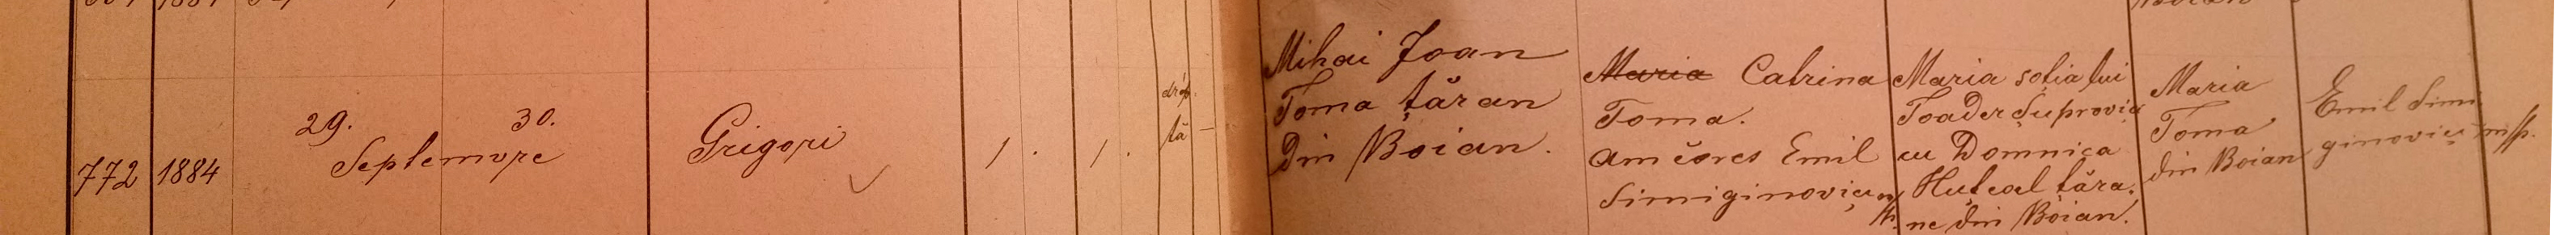 772 1884
29. 30.
Septemvre
Grigori
1. 1.
drép
tă –
Mihai Joan
Toma țăran
din Boian.
Maria Catrina
Toma.
am čores Emil
Simiginoviciu
Maria soția lui
Toader Șuprovici
cu Domnica
Huțcal țăra.
ne din Boian.
Maria
Toma
din Boian
Emil Simi
ginovici